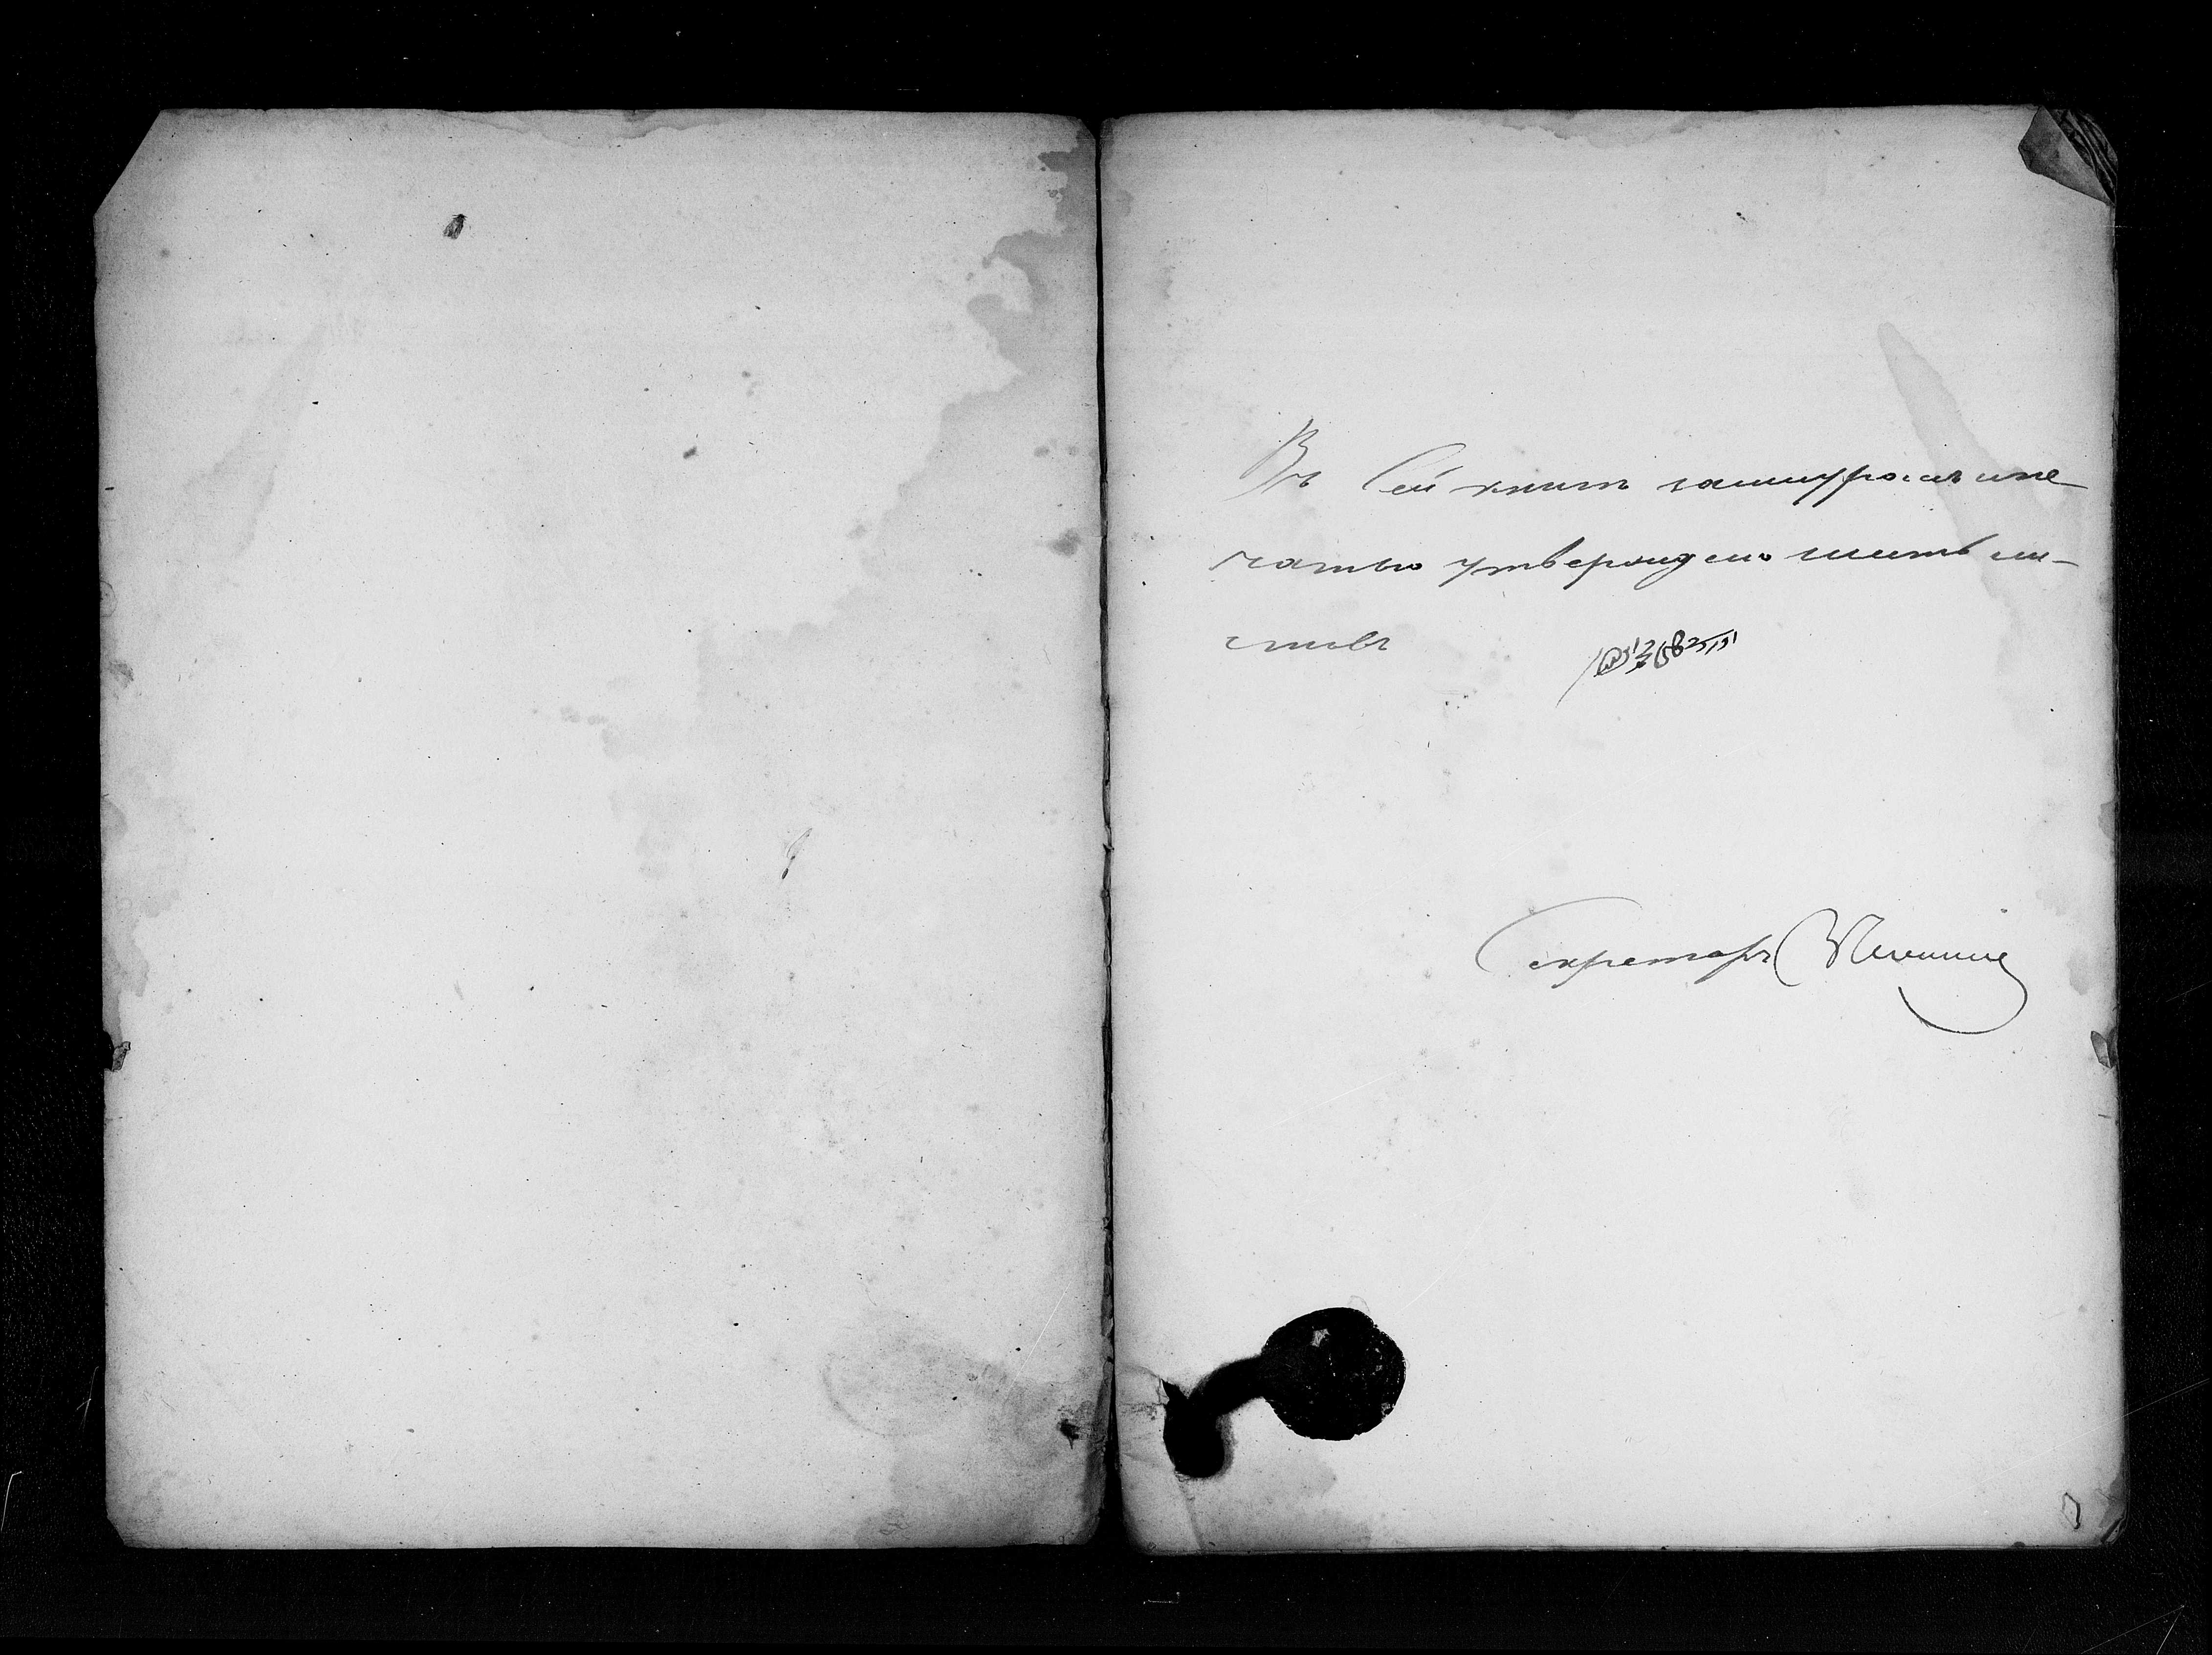 Въ Сей книгъ зашнуровано и пе
чатью утверждено шесть ли-
стовъ
Секретарь